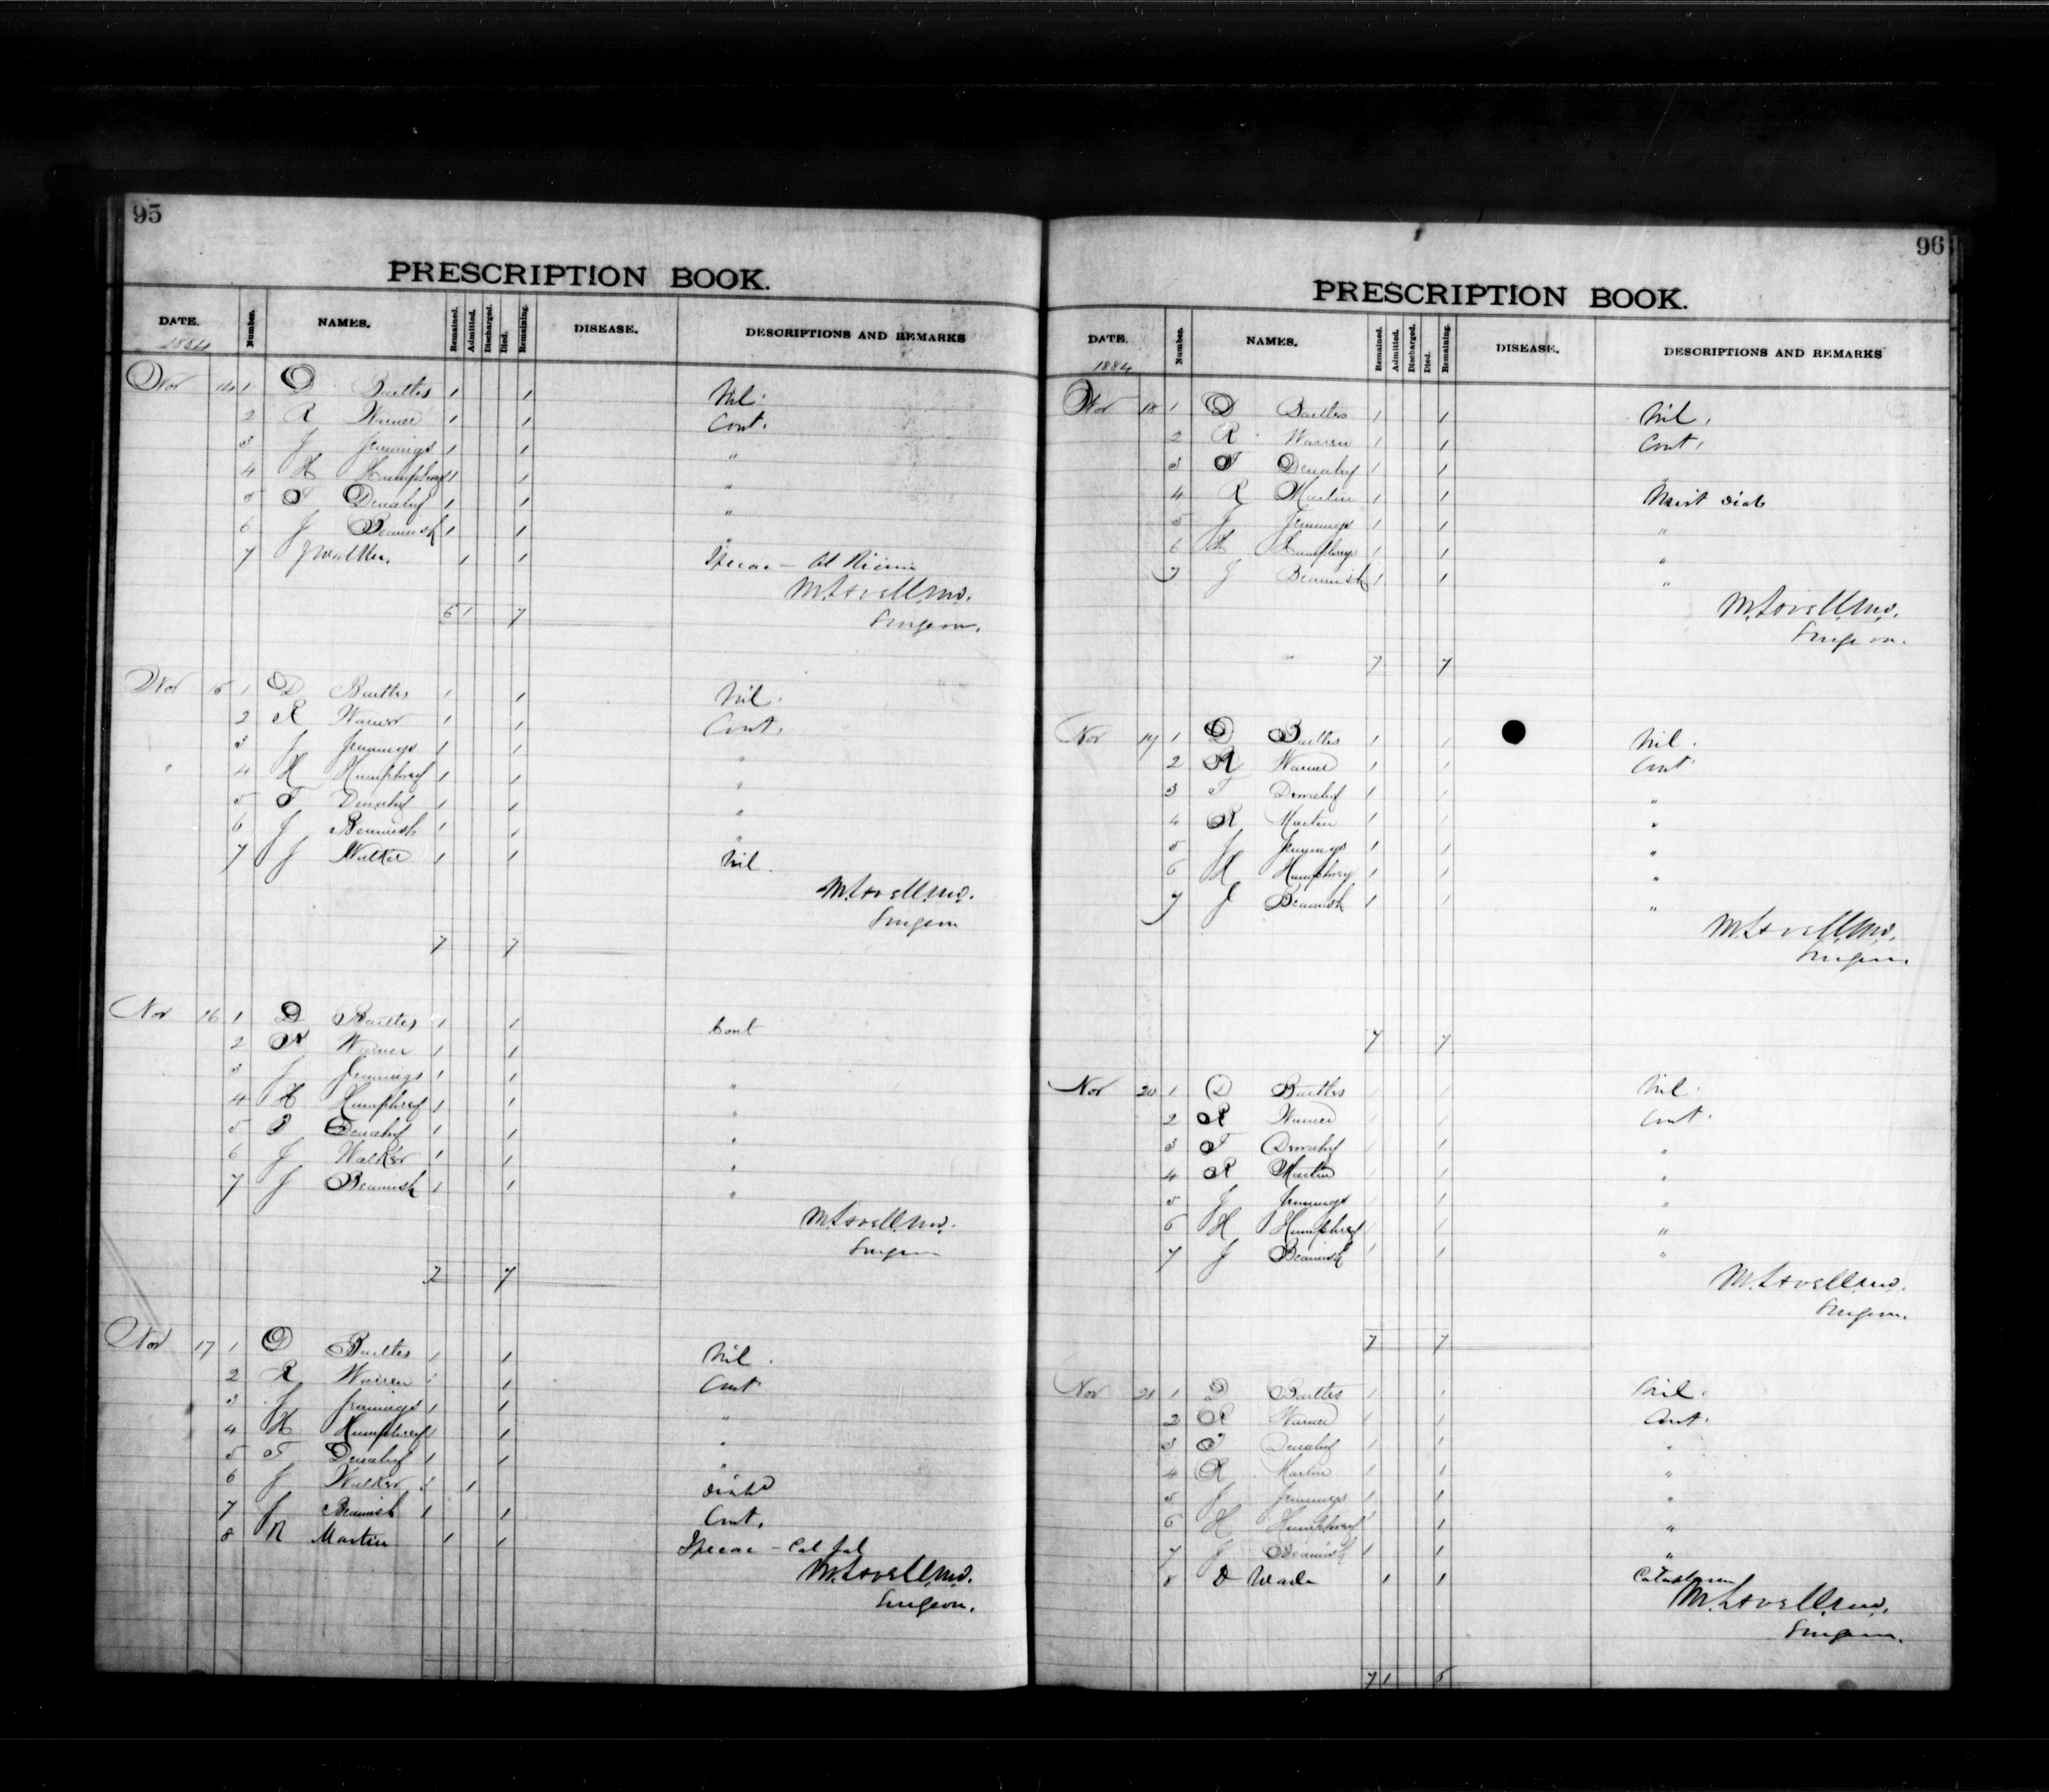 95
PRESCRIPTION BOOK.
DATE. Number. NAMES. Remained. Admitted. Discharged. Died. Remaining. DISEASE. DESCRIPTIONS AND REMARKS
1884
Nov 14 1 D 1 1 Nil.
2 R Warner 1 1 Cont.
3 J Jennings 1 1 "
4 H Humphrey 1 1 "
5 T 1 1 "
6 J Beamish 1 1 "
7 J Walker. 1 1 Ipecac - Ol Ricini
M. Lovell M.D.
Surgeon.
6 1 7
Nov 15 1 D 1 1 Nil.
2 R Warner 1 1 Cont.
3 J Jennings 1 1 "
4 H Humphrey 1 1 "
5 T 1 1 "
6 J Beamish 1 1 "
7 J Walker 1 1 Nil.
M. Lovell M.D.
Surgeon
7 7
Nov 16 1 D 1 1 Cont
2 R Warner 1 1
3 J Jennings 1 1 "
4 H Humphrey 1 1 "
5 T 1 1 "
6 J Walker 1 1 "
7 J Beamish 1 1 "
M. Lovell M.D.
Surgeon
7 7
Nov 17 1 D 1 1 Nil.
2 R Warren 1 1 Cont
3 J Jennings 1 1 "
4 H Humphrey 1 1 "
5 T 1 1 "
6 J Walker 1 1
7 J Beamish 1 1 Cont.
8 R Martin 1 1 Ipecac - Cal Jal
M. Lovell M.D.
Surgeon.
96
PRESCRIPTION BOOK.
DATE. Number. NAMES. Remained. Admitted. Discharged. Died. Remaining. DISEASE. DESCRIPTIONS AND REMARKS
1884
Nov 18 1 D 1 1 Nil.
2 R Warren 1 1 Cont.
3 T 1 1 "
4 R Martin 1 1 Mist
5 J Jennings 1 1 "
6 H Humphrey 1 1 "
7 J Beamish 1 1 "
M. Lovell M.D.
Surgeon.
7 7
Nov 19 1 D 1 1 Nil.
2 R Warner 1 1 Cont
3 T 1 1 "
4 R Martin 1 1 "
5 J Jennings 1 1 "
6 H Humphrey 1 1 "
7 J Beamish 1 1 "
M. Lovell M.D.
Surgeon.
7 7
Nov 20 1 D 1 1 Nil.
2 R Warner 1 1 Cont.
3 T 1 1 "
4 R Martin 1 1 "
5 J Jennings 1 1 "
6 H Humphrey 1 1 "
7 J Beamish 1 1 "
M. Lovell M.D.
Surgeon.
7 7
Nov 21 1 D 1 1 Nil.
2 R Warner 1 1 Cont.
3 T 1 1 "
4 R Martin 1 1 "
5 J Jennings 1 1 "
6 H Humphrey 1 1 "
7 J Beamish 1 1 "
8 D Wade 1 1
M. Lovell M.D.
Surgeon.
7 1